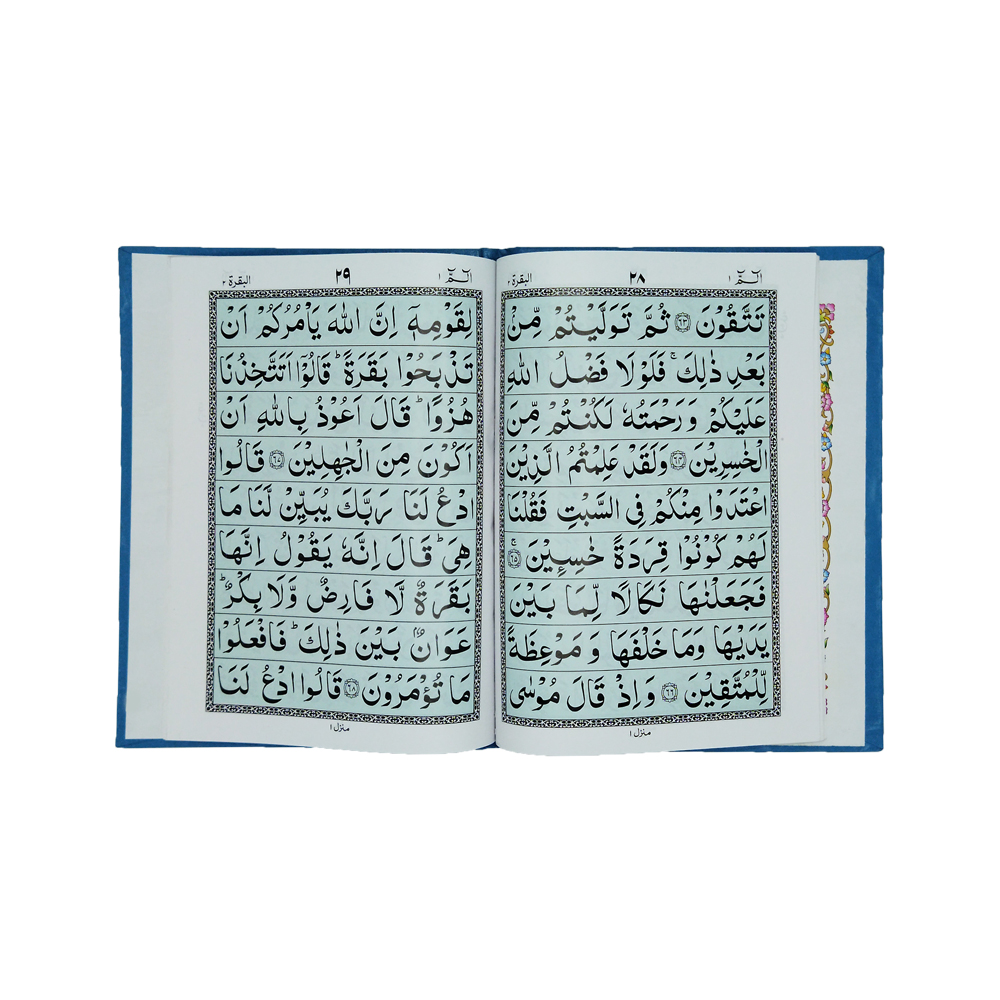 الٓمّٓ ١ ٢٨ البقرة ٢
تَتَّقُوْنَ ﴿٦٣﴾ ثُمَّ تَوَلَّيْتُمْ مِّنْۢ
بَعْدِ ذٰلِكَ ۚ فَلَوْلَا فَضْلُ اللّٰهِ
عَلَيْكُمْ وَرَحْمَتُهٗ لَكُنْتُمْ مِّنَ
الْخٰسِرِيْنَ ﴿٦٤﴾ وَلَقَدْ عَلِمْتُمُ الَّذِيْنَ
اعْتَدَوْا مِنْكُمْ فِى السَّبْتِ فَقُلْنَا
لَهُمْ كُوْنُوْا قِرَدَةً خٰسِـِٕيْنَ ۚ﴿٦٥﴾
فَجَعَلْنٰهَا نَكَالًا لِّمَا بَيْنَ
يَدَيْهَا وَمَا خَلْفَهَا وَ مَوْعِظَةً
لِّلْمُتَّقِيْنَ ﴿٦٦﴾ وَ اِذْ قَالَ مُوْسٰى
منزل ١
الٓمّٓ ١ ٢٩ البقرة ٢
لِقَوْمِهٖۤ اِنَّ اللّٰهَ يَاْمُرُكُمْ اَنْ
تَذْبَحُوْا بَقَرَةً ؕ قَالُوْۤا اَتَتَّخِذُنَا
هُزُوًا ؕ قَالَ اَعُوْذُ بِاللّٰهِ اَنْ
اَكُوْنَ مِنَ الْجٰهِلِيْنَ ﴿٦٧﴾ قَالُوا
ادْعُ لَنَا رَبَّكَ يُبَيِّنْ لَّنَا مَا
هِىَ ؕ قَالَ اِنَّهٗ يَقُوْلُ اِنَّهَا
بَقَرَةٌ لَّا فَارِضٌ وَّلَا بِكْرٌ ؕ
عَوَانٌۢ بَيْنَ ذٰلِكَ ؕ فَافْعَلُوْا
مَا تُؤْمَرُوْنَ ﴿٦٨﴾ قَالُوا ادْعُ لَنَا
منزل ١